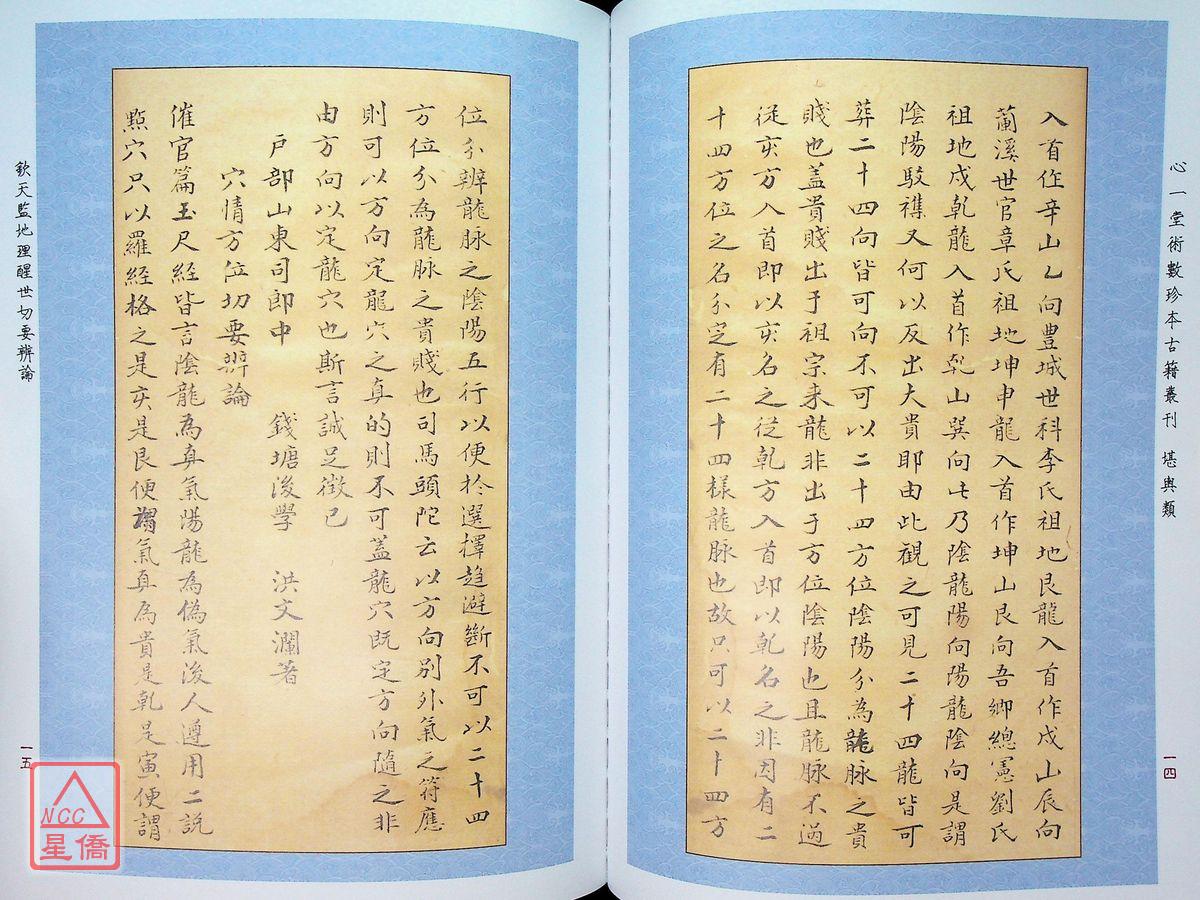 心一堂術數珍本古籍叢刊 堪輿類
一四
入首作辛山乙向豊城世科李氏祖地艮龍入首作戌山辰向
蘭溪世官章氏祖地坤申龍入首作坤山艮向吾鄉總憲劉氏
祖地戌乾龍入首作乾山巽向此乃陰龍陽向陽龍陰向是謂
陰陽駁襍又何以反出大貴耶由此觀之可見二十四龍皆可
葬二十四向皆可向不可以二十四方位陰陽分為龍脉之貴
賤也盖貴賤出于祖宗来龍非出于方位陰陽也且龍脉不過
従亥方入首即以亥名之従乾方入首即以乾名之非因有二
十四方位之名分定有二十四樣龍脉也故只可以二十四方
位分辨龍脉之陰陽五行以便於選擇趋避斷不可以二十四
方位分為龍脉之貴賤也司馬頭陀云以方向別外氣之符應
則可以方向定龍穴之真的則不可盖龍穴既定方向隨之非
由方向以定龍穴也斯言誠足徴已
戶部山東司郎中 錢塘後學 洪文瀾著
穴情方位切要辨論
催官篇玉尺經皆言陰龍為真氣陽龍為偽氣後人遵用二説
點穴只以羅經格之是亥是艮便謂氣真為貴是乾是寅便謂
欽天監地理醒世切要辨論
一五
NCC
星僑